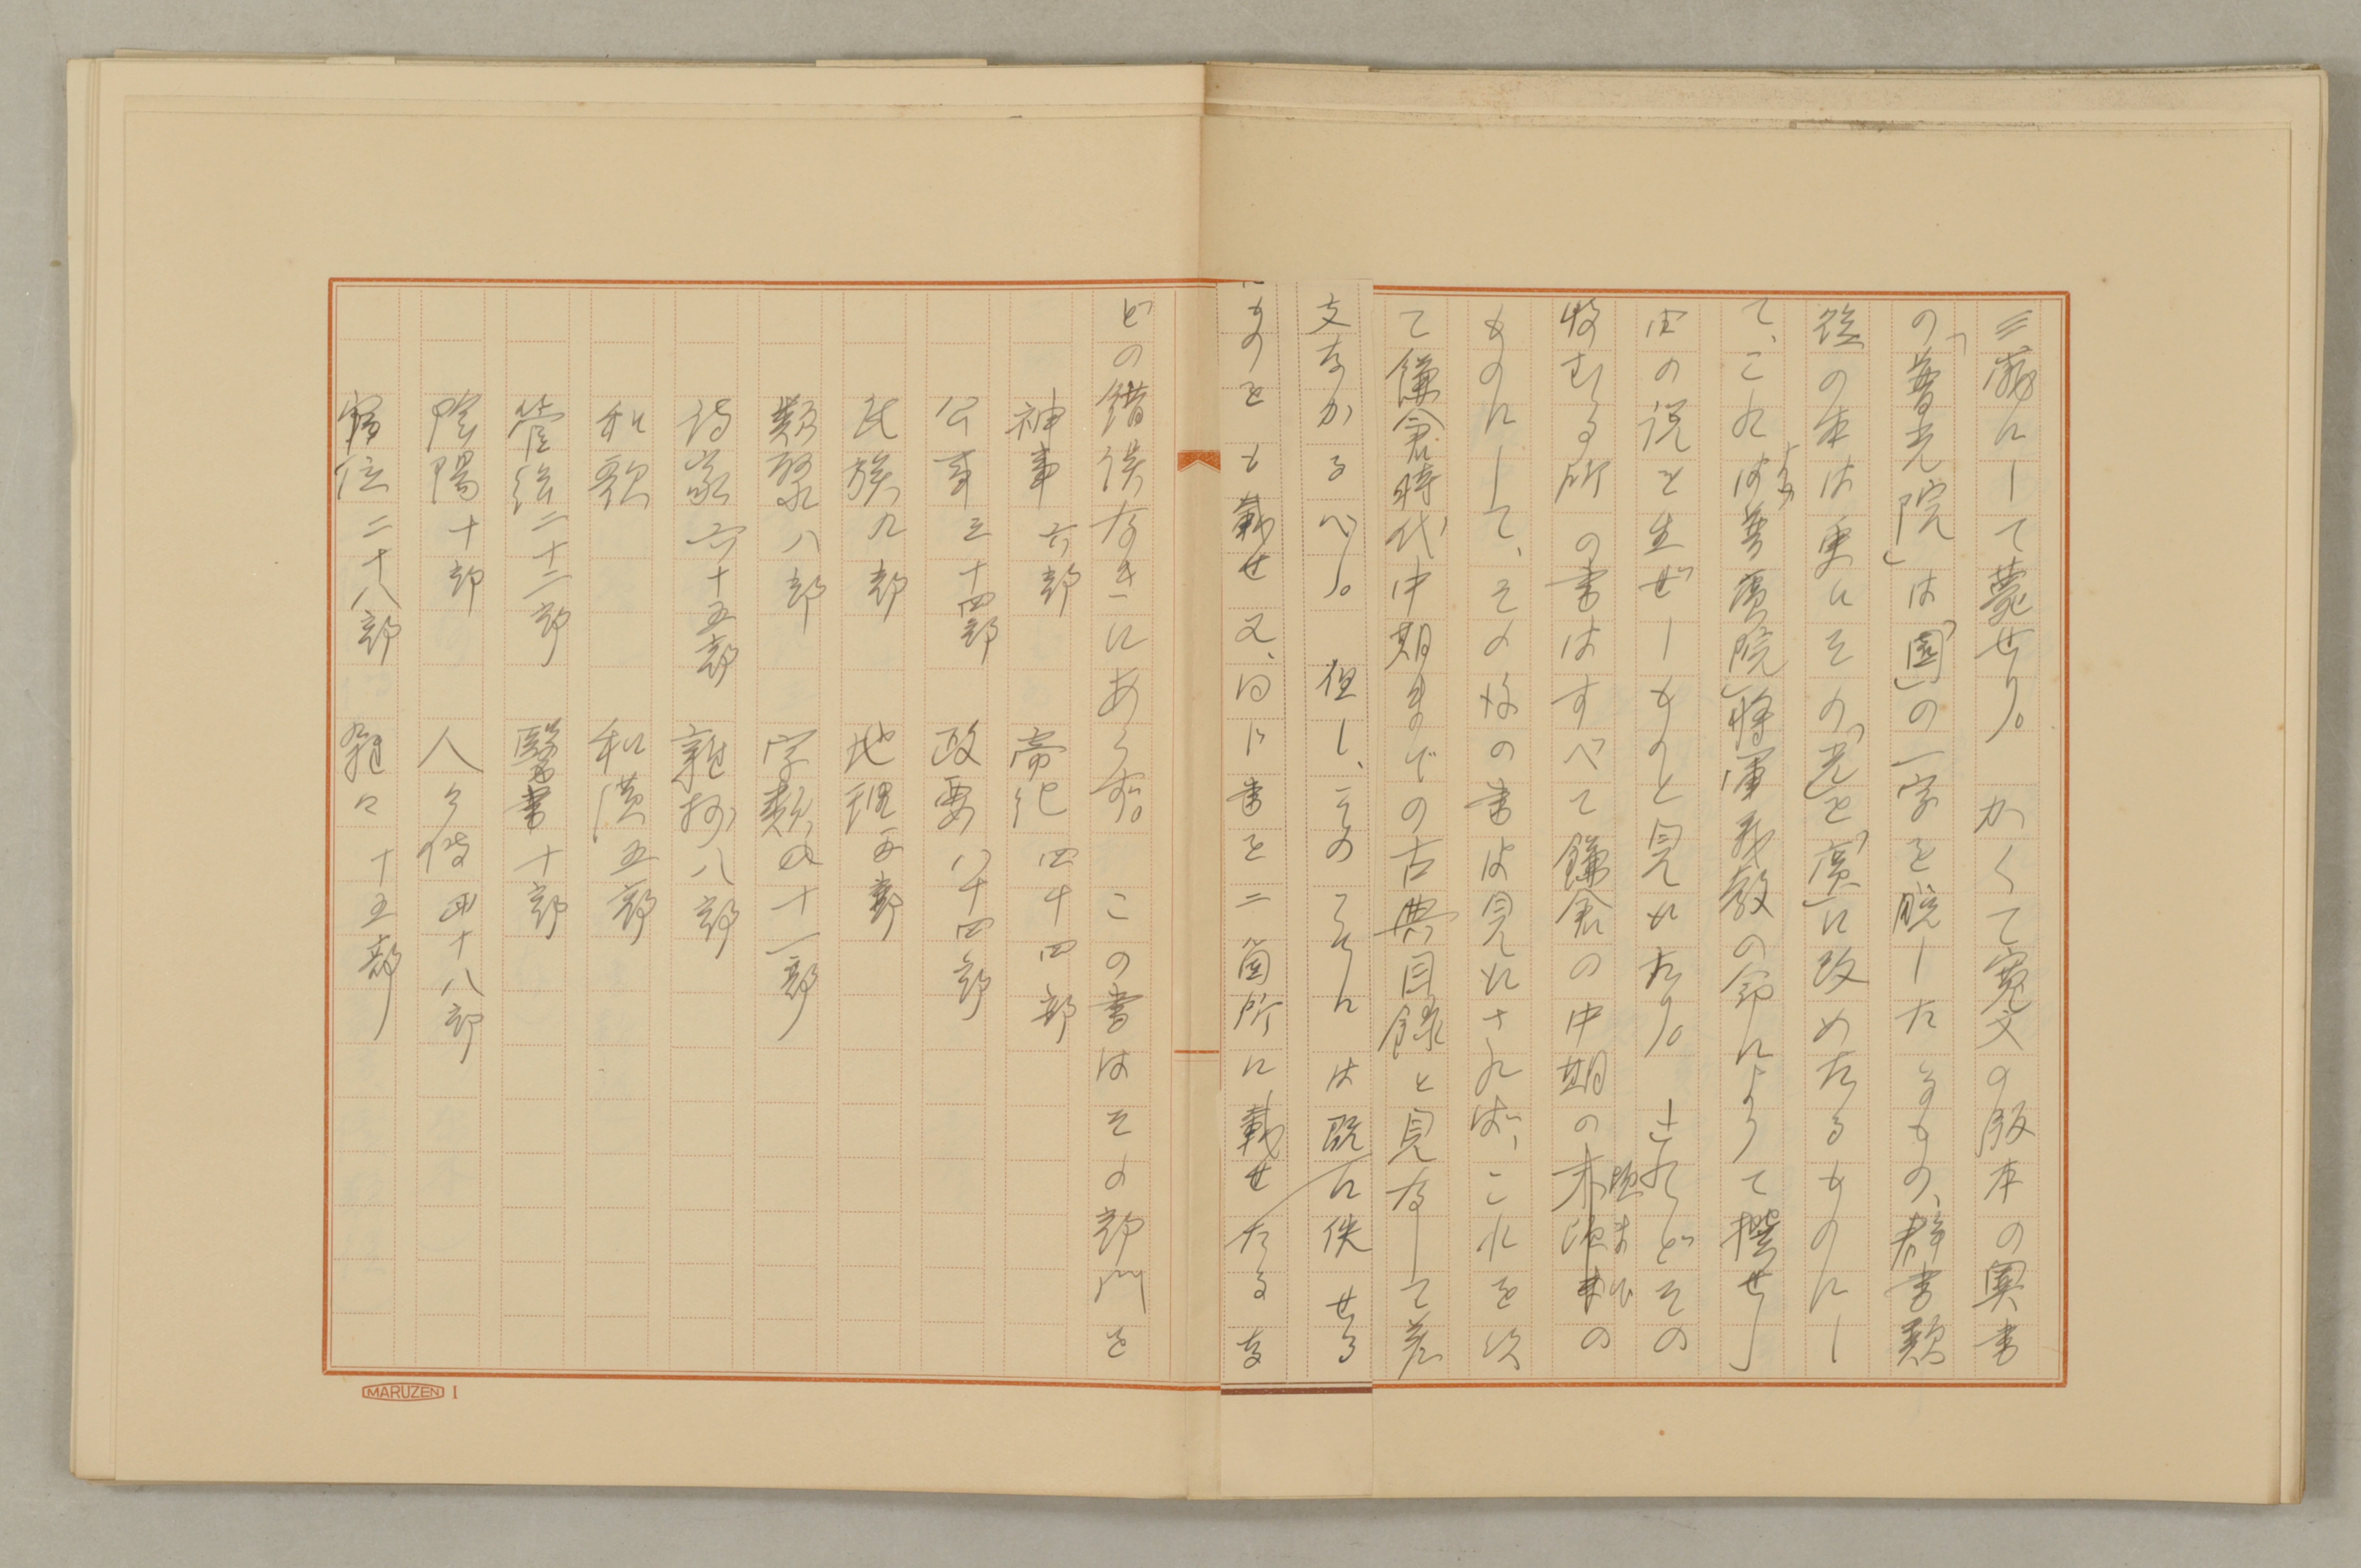 三歳にして薨せり。かくて寛文の版本の奥書
の「普光院」は「園」の一字を脱したるもの、群書類
従の本は更にその「光」を「廣」に改めたるものにし
て、これより「普廣院将軍義教の命によりて撰せ」
由の説を生ぜしものと見れたり。されどその
收むる所の書はすべて鎌倉の中期の頃までの
ものにして、その後の書は見れざれば、これを以
て鎌倉時代中期までの古典目録と見なして差
支なかるべし。但し、そのうちには既に佚せる
ものをも載せ又、同じ書を二箇所に載せたるな
どの錯誤なきにあらず。この書はその部門を
神事 六部 帝紀 四十四部
公事 三十四部 政要 八十四部
氏族 九部 地理 五部
類聚 八部 字類 四十一部
詩家 六十五部 雑抄 八部
和歌 和漢 五部
管絃 二十二部 醫書 十部
陰陽 十部 人々傳 四十八部
官位 二十八部 雑々 十五部
MARUZEN 1